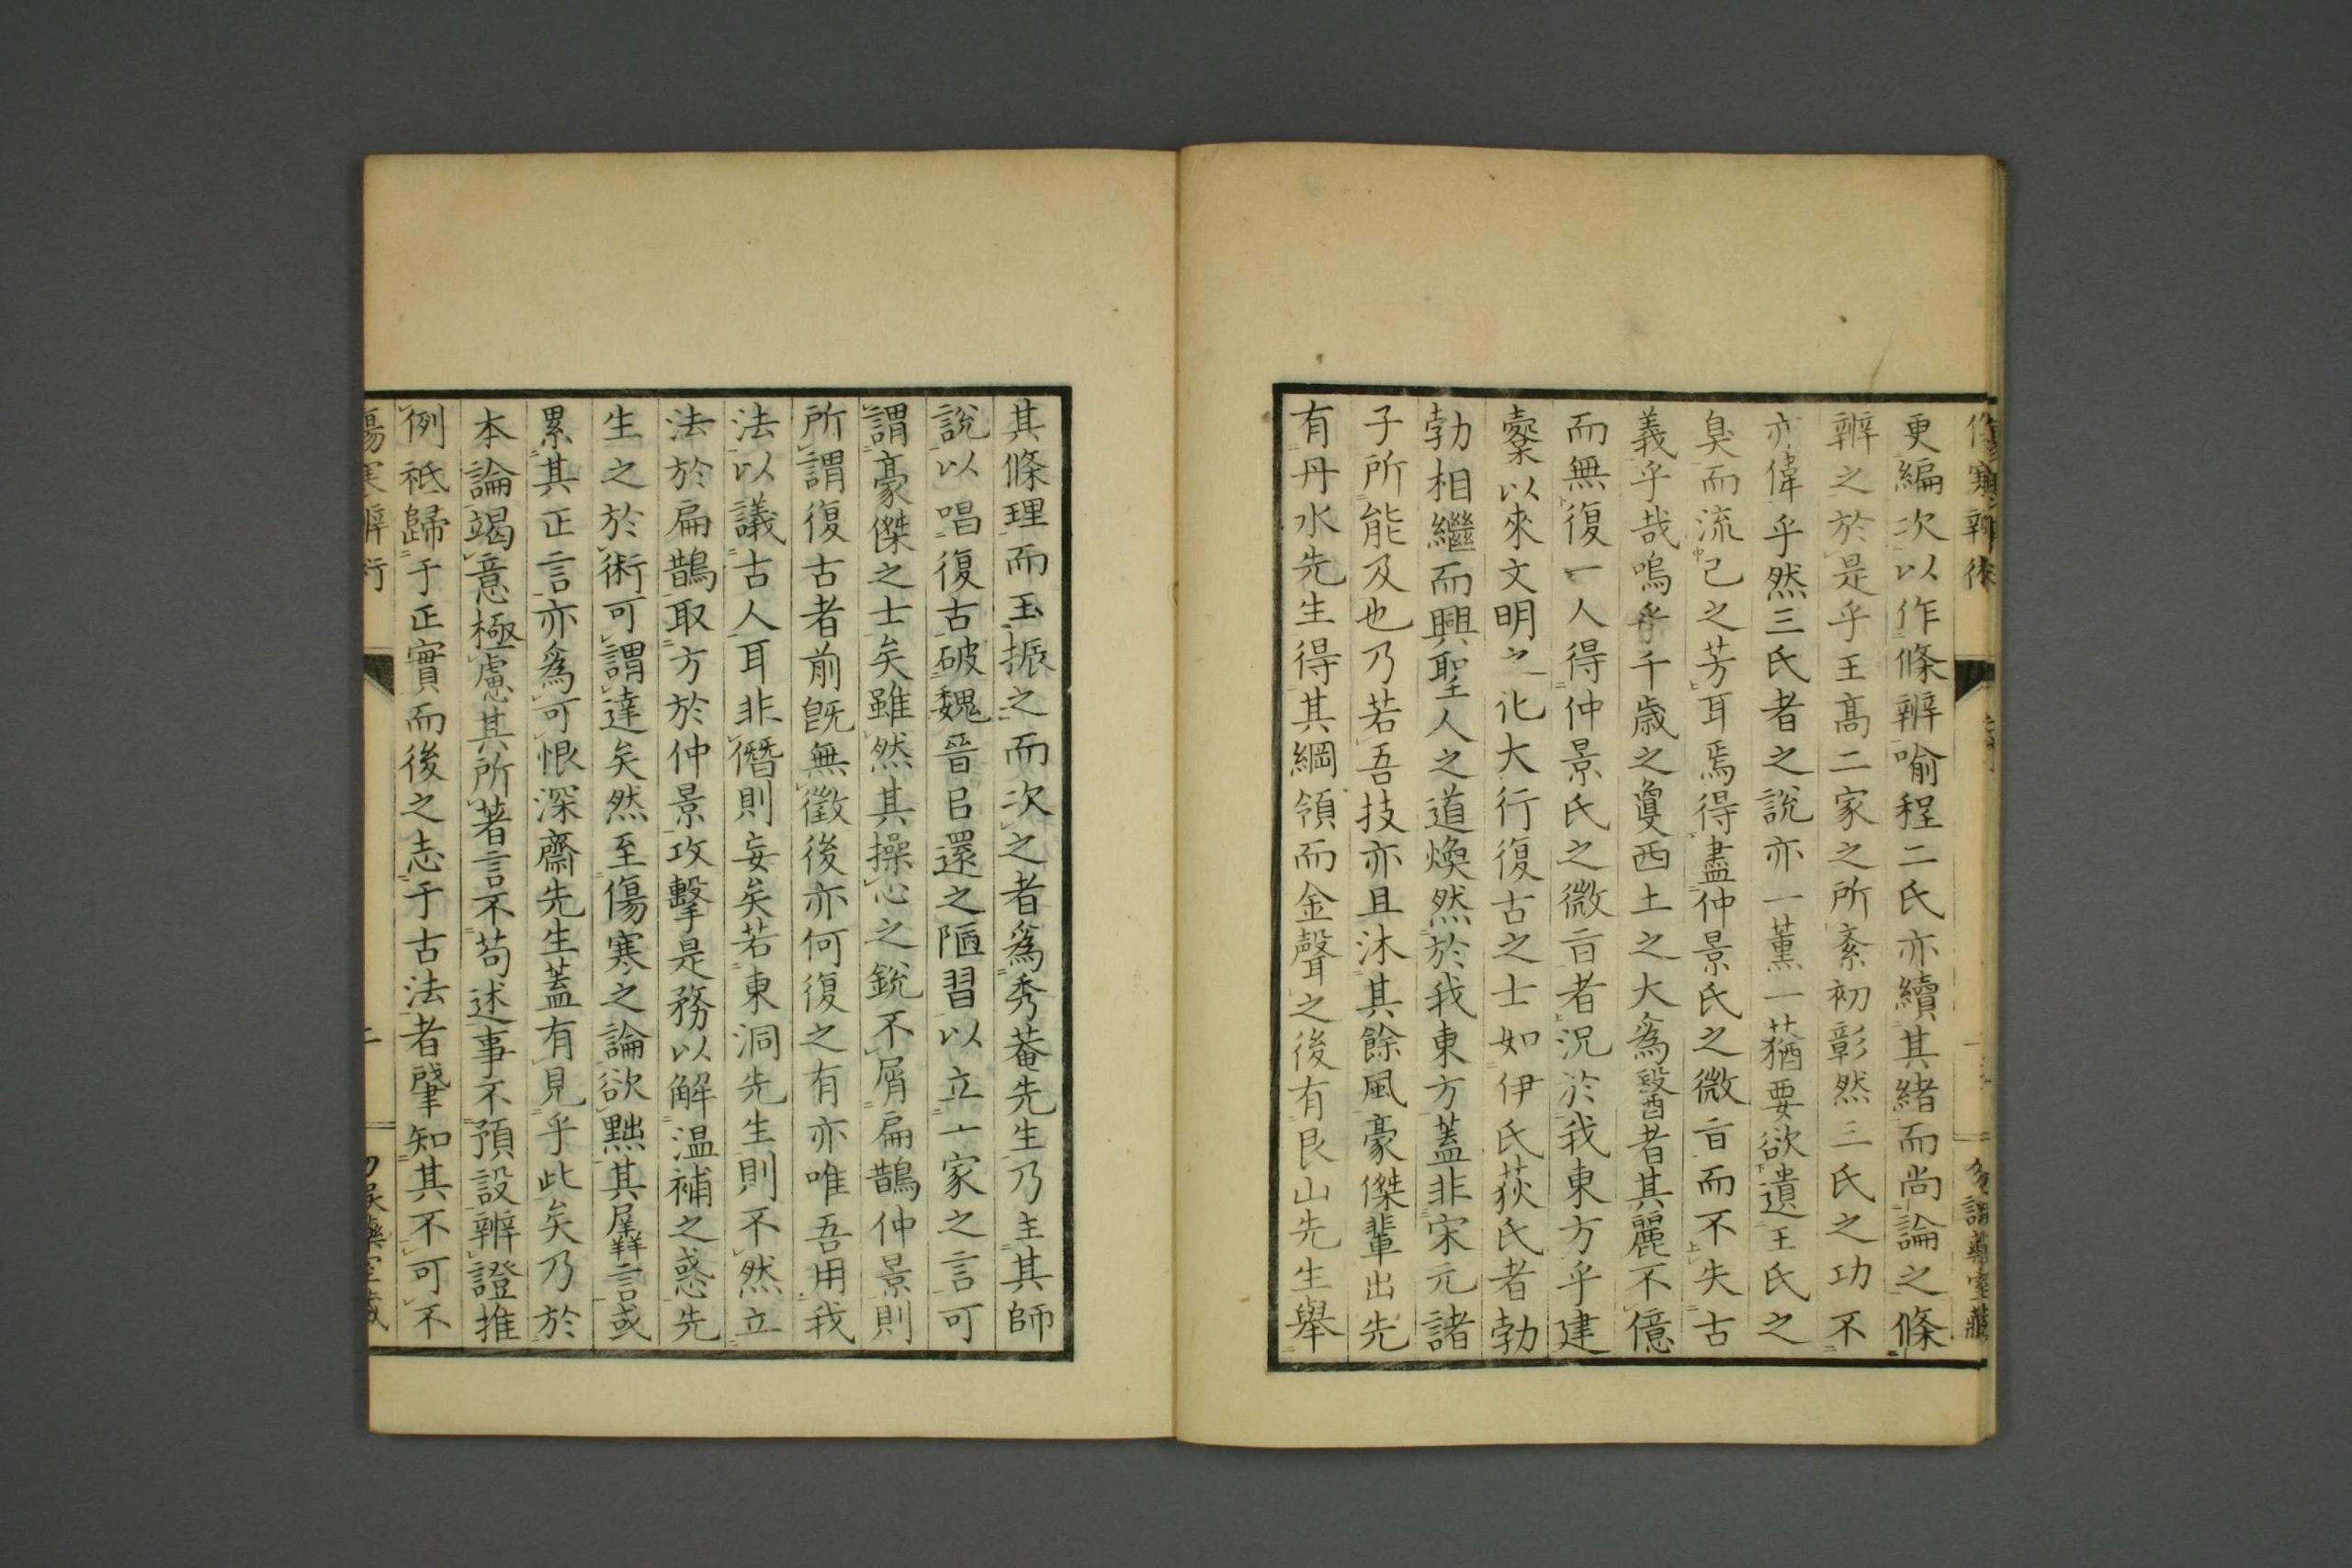 更編次以作條辨喻程二氏亦續其緒而尚論之條
辨之於是乎王高二家之所紊初彰然三氏之功不
亦偉乎然三氏者之說亦一薰一蕕要欲遺王氏之
臭而流己之芳耳焉得盡仲景氏之微旨而不失古
義乎哉嗚乎千歲之夐西土之大爲醫者其麗不億
而無復一人得仲景氏之微旨者況於我東方乎建
櫜以來文明之化大行復古之士如伊氏荻氏者勃
勃相繼而興聖人之道煥然於我東方蓋非宋元諸
子所能及也乃若吾技亦且沐其餘風豪傑輩出先
有丹水先生得其綱領而金聲之後有艮山先生舉
其條理而玉振之而次之者爲秀菴先生乃主其師
說以唱復古破魏晉㠯還之陋習以立一家之言可
謂豪傑之士矣雖然其操心之銳不屑扁鵲仲景則
所謂復古者前旣無徵後亦何復之有亦唯吾用我
法以議古人耳非僭則妄矣若東洞先生則不然立
法於扁鵲取方於仲景攻擊是務以解温補之惑先
生之於術可謂達矣然至傷寒之論欲黜其羼言或
累其正言亦爲可恨深齋先生蓋有見乎此矣乃於
本論竭意極慮其所著言不苟述事不預設辨證推
例祗歸于正實而後之志于古法者肇知其不可不